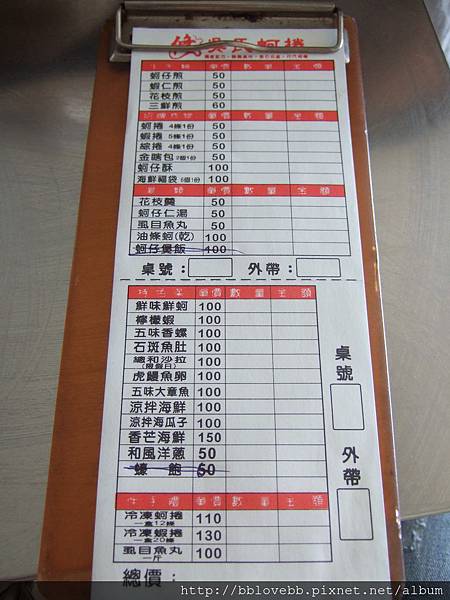 吳氏蚵捲
單價 數量 金額
蚵仔煎 50
蚵仁煎 50
花枝煎 50
三鮮煎 60
單價 數量 金額
蚵捲 4條1份 50
蝦捲 5條1份 50
綜捲 4條1份 50
金瞎包 2個1份 50
蚵仔酥 100
海鮮福袋 6個1份 100
單價 數量 金額
花枝羹 50
蚵仔仁湯 50
虱目魚丸 50
油條蚵(乾) 100
蚵仔煲飯 100
桌號： 外帶：
單價 數量 金額
鮮味鮮蚵 100
檸檬蝦 100
五味香螺 100
石斑魚肚 100
總和沙拉 (限假日) 100
虎鰻魚卵 100
五味大章魚 100
涼拌海鮮 100
涼拌海瓜子 100
香芒海鮮 150
和風洋蔥 50
蠔 鮑 50
桌號
外帶
伴手禮 單價 數量 金額
冷凍蚵捲 一盒12條 110
冷凍蝦捲 一盒20條 130
虱目魚丸 一斤 100
總價：
http://bblovebb.pixnet.net/album